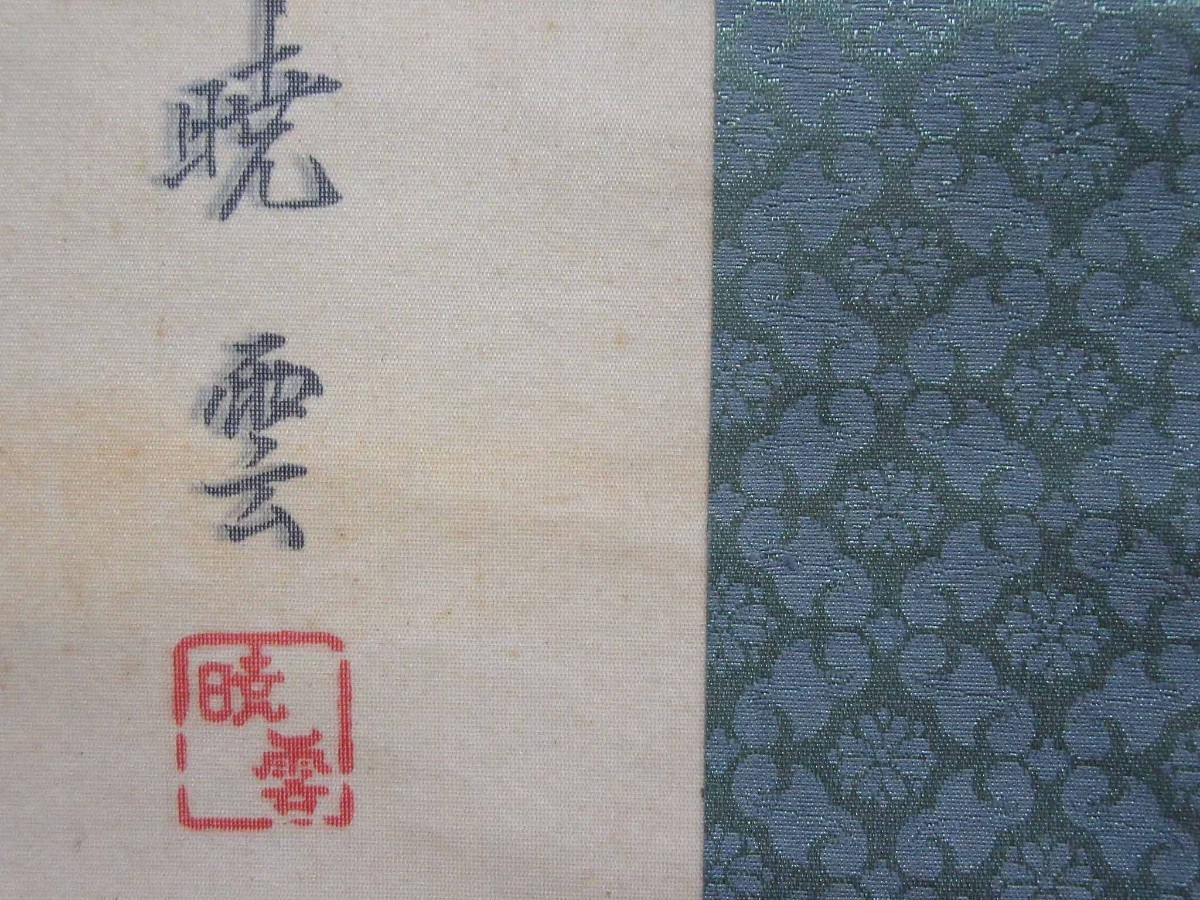 暁雲
暁雲